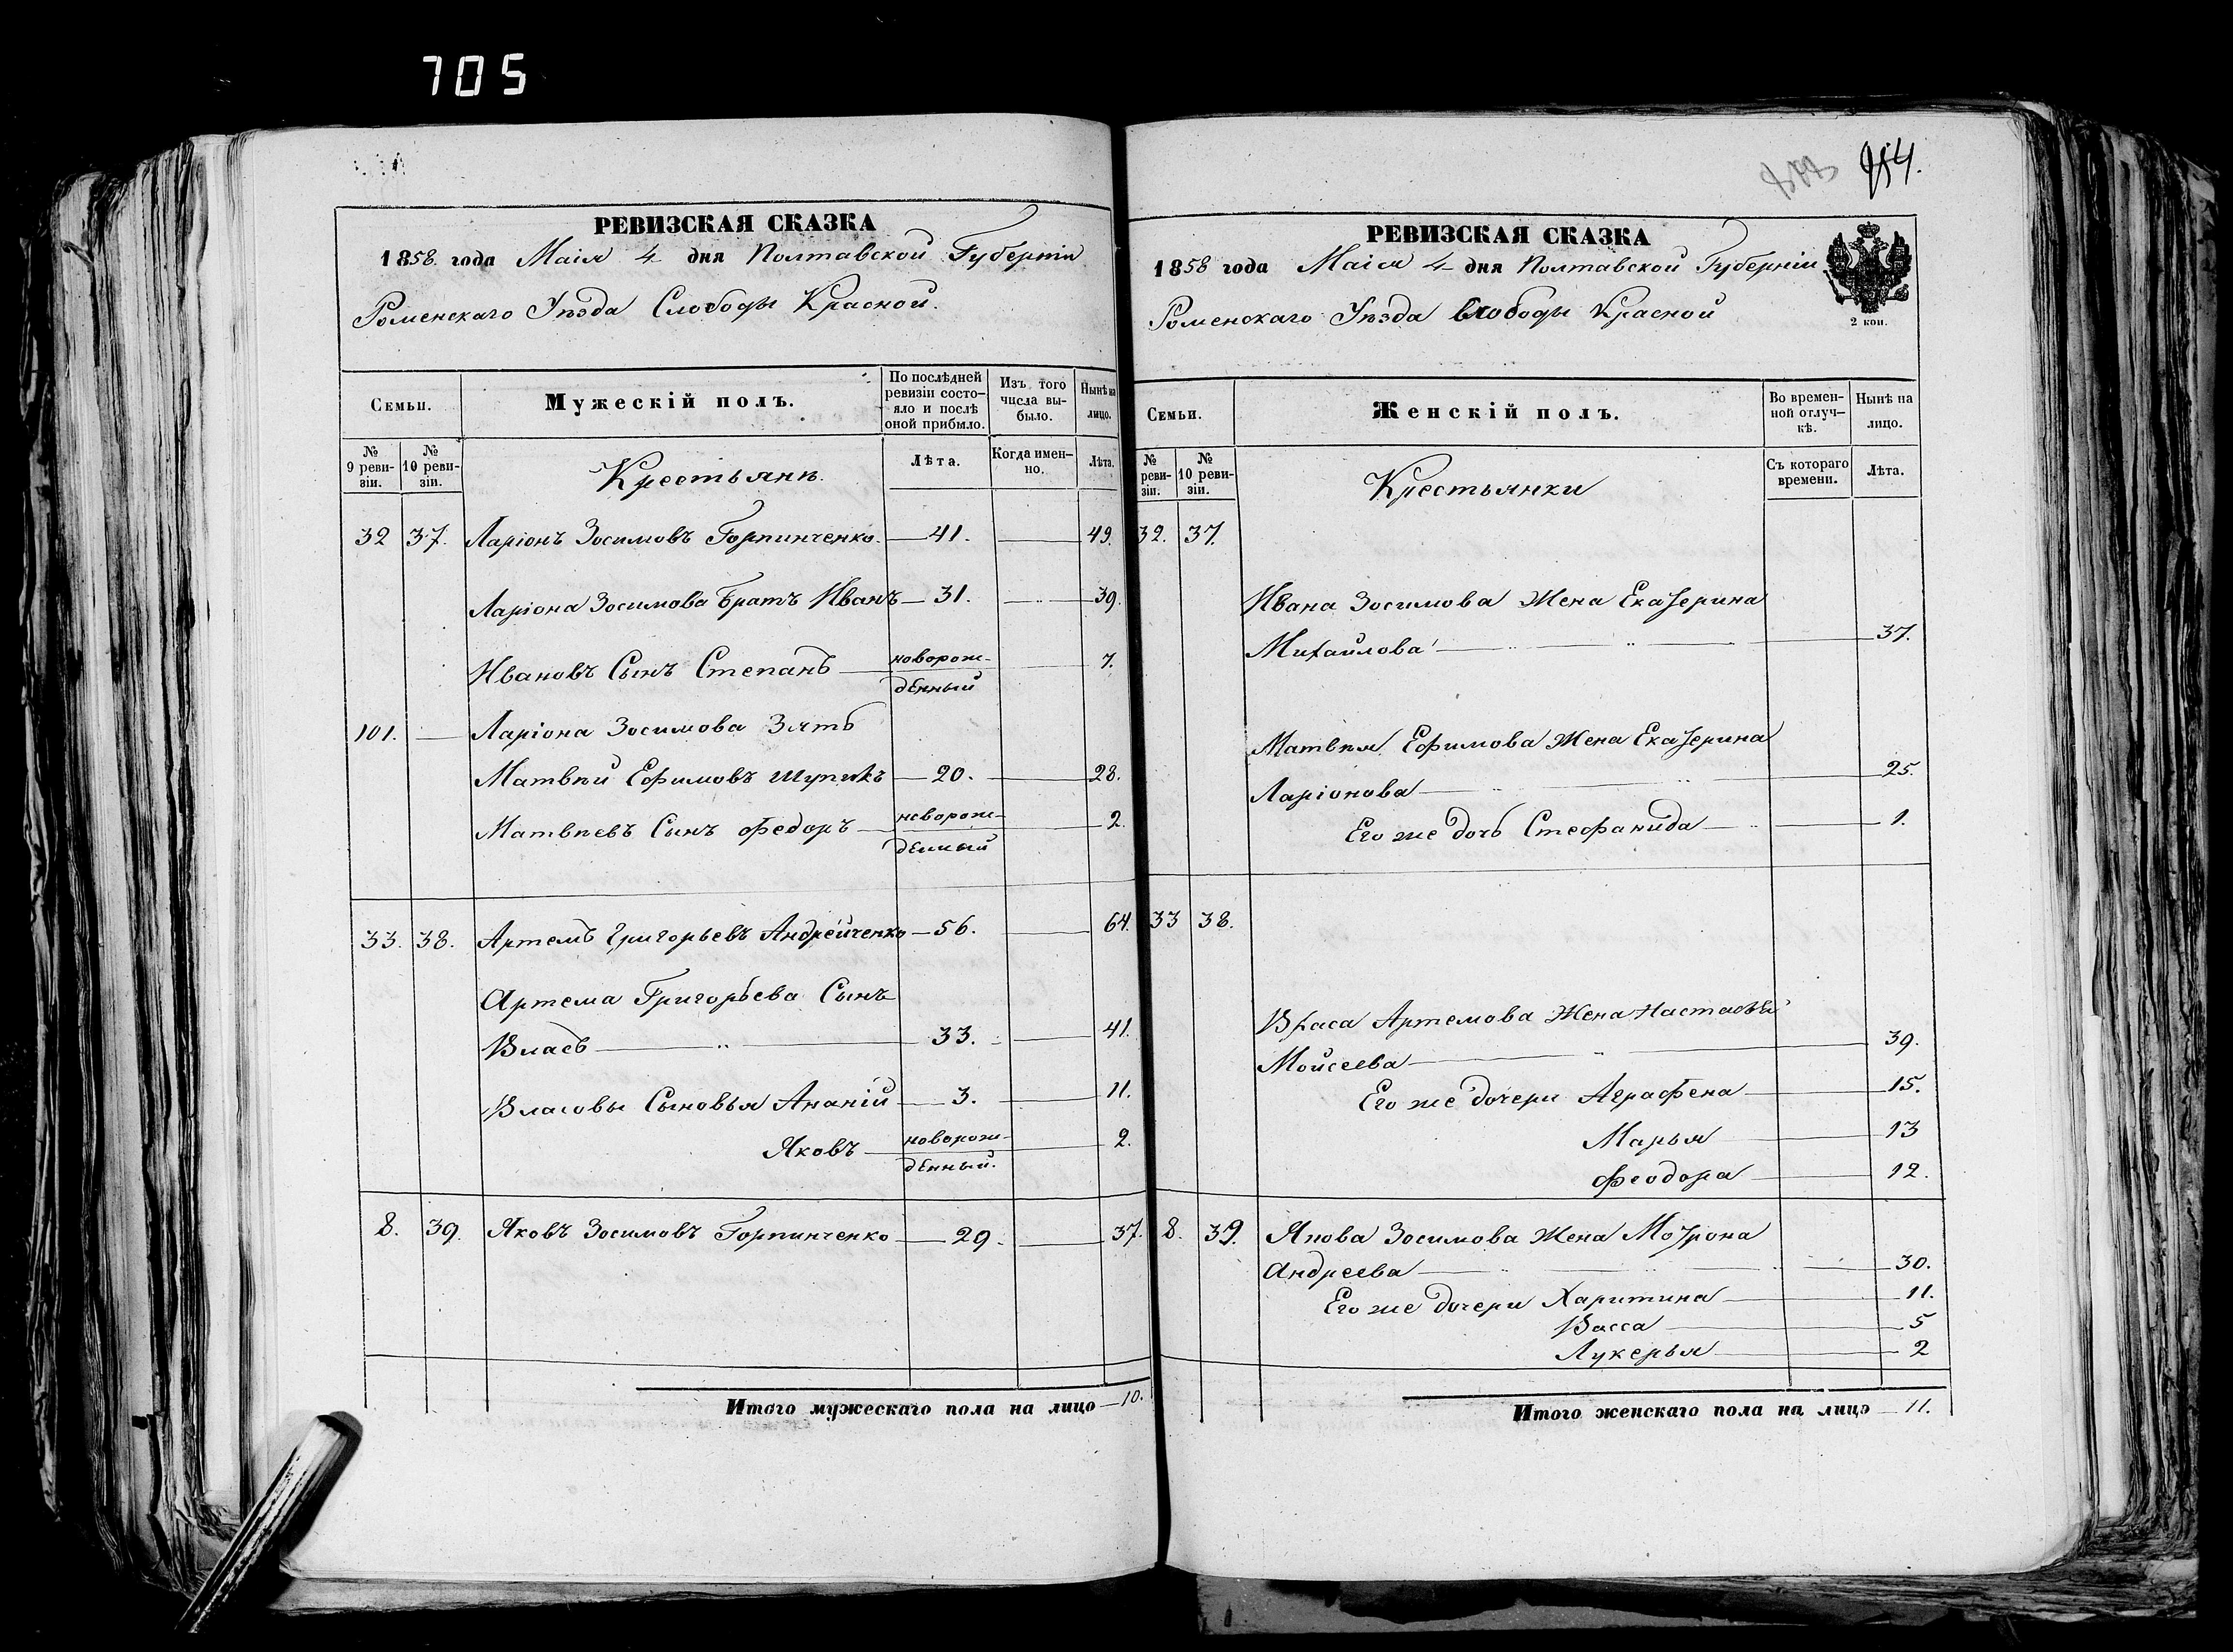 705
РЕВИЗСКАЯ СКАЗКА
1858. года Маія 4 дня Полтавской Губерніи
Роменскаго Уѣзда Слободы Красной.
Семьи.
Мужескій полъ.
По послѣдней ревизіи состо-яло и послѣ оной прибыло.
Изъ того числа вы-было.
Нынѣ на лицо.
№ 9 реви-зіи.
№ 10 реви-зіи.
Крестьянѣ.
Лѣта.
Когда имен-но.
Лѣта.
32 37. Ларіонъ Зосимовъ Горпинченко. 41. 49.
Ларіона Зосимова братъ Иванъ 31. 39.
Ивановъ Сынъ Степанъ новорож-денный 7.
101. Ларіона Зосимова Зять
Матвѣй Ефимовъ Шупикъ 20. 28.
Матвѣевъ Сынъ Федоръ новорож-денный 2.
33. 38. Артемъ Григорьевъ Андрейченко 56. 64.
Артема Григорьева Сынъ
Власъ 33. 41.
Власовы Сыновья Ананій 3. 11.
Яковъ новорож-денный. 2.
8. 39. Яковъ Зосимовъ Горпинченко 29. 37.
Итого мужескаго пола на лицо 10.
954.
РЕВИЗСКАЯ СКАЗКА
1858 года Маія 4 дня Полтавской Губерніи
Роменскаго Уѣзда Слободы Красной
2 коп.
Семьи.
Женскій полъ.
Во времен-ной отлуч-кѣ.
Нынѣ на лицо.
№ реви-зіи.
№ 10 реви-зіи.
Крестьянки
Съ котораго времени.
Лѣта.
32. 37.
Ивана Зосимова Жена Екатерина
Михайлова 37.
Матвѣя Ефимова Жена Екатерина
Ларіонова 25.
Его же дочь Стефанида 1.
33 38.
Власа Артемова Жена Настасья
Мойсеева 39.
Его же дочери Аграфена 15.
Марья 13
Феодора 12.
8. 39. Якова Зосимова Жена Мотрона
Андреева 30.
Его же дочери Харитина 11.
Васса 5
Лукерья 2
Итого женскаго пола на лицо 11.